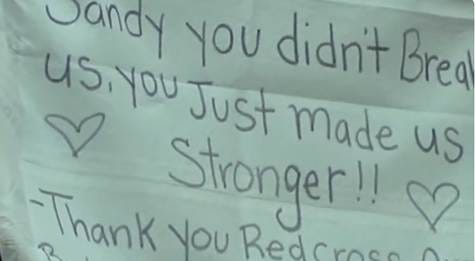 Sandy you didn't Break
us, you Just made us
Stronger!!
-Thank you Redcross